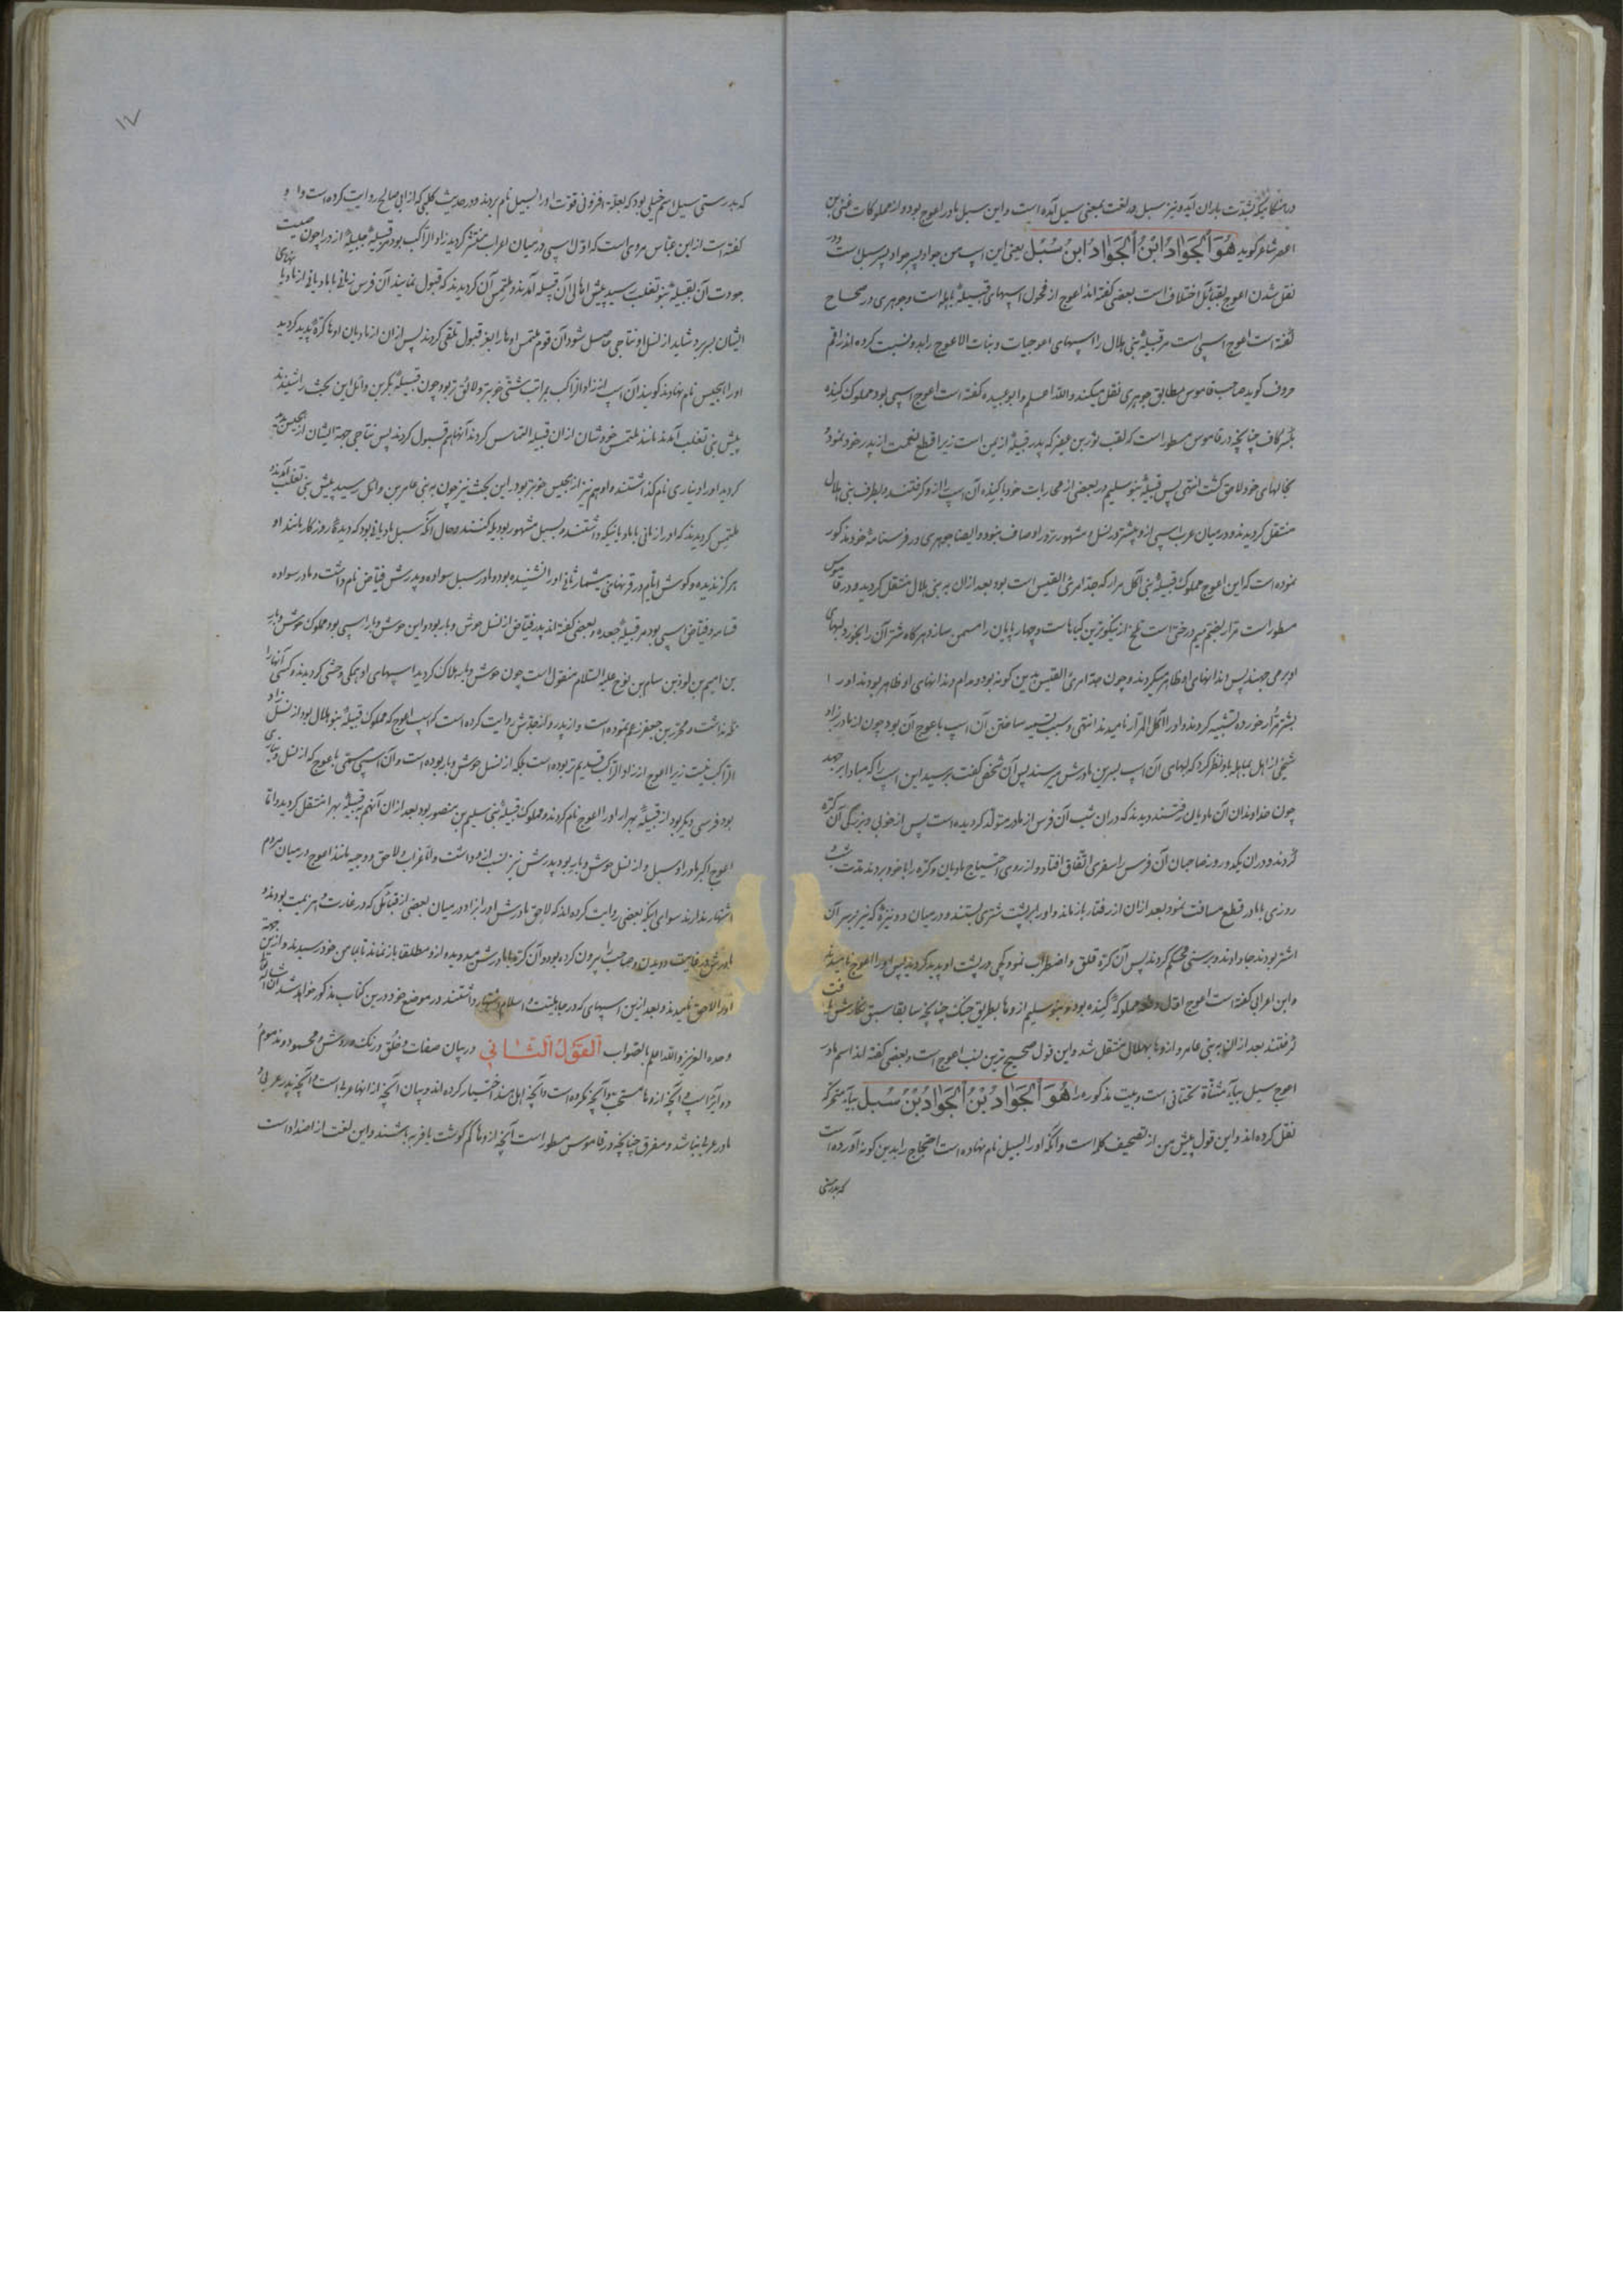 درهنگامیکه بشدت باران آید و نیز سبل در لغت بمعنی سیل آمده است و این سبل مادر اعوج بود و از مملوکات غنی بن
اعصر شاعر کوید هُوَ اَلجَوَادُ ابْنُ اَلجَوَادُ ابنُ سُبُل یعنی این اسپ من جواد پسر جواد پسر سبل است و در
نقل شدن اعوج بقبائل اختلاف است بعضی کفته اند اعوج از فحول اسپهای قبیلۀ باهله است و جوهری در صحاح
گفته است اعوج اسپی است مر قبیلۀ بنی هلال را اسپهای اعوجیات و بنات الاعوج را بدو نسبت کرده اند راقم
حروف کوید صاحب قاموس مطابق جوهری نقل میکند والله اعلم و ابو عبیده کفته است اعوج اسپی بود مملوک کنده
بکسر کاف چنانچه در قاموس مسطور است که لقب ثور بن عفیر که پدر قبیله از یمن است زیرا قطع نعمت از پدر خود نمود و
بخالهای خود لاحق کشت انتهی پس قبیلۀ بنو سلیم در بعضی از محاربات خود با کنده آن اسپ را از و کرفتند و بطرف بنی هلال
منتقل کردیدند و در میان عرب اسپی از و بیشتر در نسل و مشهورتر در اوصاف نبود و ایضا جوهری در فرسنامۀ خود مذکور
نموده است که این اعوج مملوک قبیلۀ بنی آکل مرار که جد امرئ القیس است بود بعد ازان به بنی هلال منتقل کردید و در قاموس
مسطور است مرار بضم میم درختی است تلخ از نیکوترین کیاهاست و چهارپایان را مسمن سازد و هرکاه شتر آن را بخورد لبهای
او برمی جهند پس دندانهای او ظاهر میکردند و چون جد امرئ القیس بدین کونه بود و مدام دندانهای او ظاهر بودند او را
بشتر مرار خورده تشبیه کردند و او را آکل المرار نامیدند انتهی و سبب تسمیه ساختن آن اسپ باعوج آن بود چون از مادر بزاد
شخصی از اهل قبیله باو نظر کرد که لبهای آن اسپ بسرین مادرش میرسند پس آن شخص کفت برسید این اسپ را که مبادا برجهد
چون خداوندان آن مادیان رفتند دیدند که دران شب آن فرس از مادر متولد کردیده است پس از خوبی و بزرگی آن کره
کردند و دران یکدو روز صاحبان آن فرس را سفری اتفاق افتاد و از روی احتیاج مادیان و کره را با خود بردند مدت شب و
روزی با مادر قطع مسافت نمود بعد ازان از رفتار بازماند و او را بر پشت شتری بستند و در میان دو نیزه که نیز بر سر آن
اشتر بودند جا دادند و برسنی محکم کردند پس آن کره قلق و اضطراب نمود و کجی در پشت او پدید کردید پس او را اعوج نامیدند
و ابن اعرابی کفته است اعوج اول مملوکۀ کنده بود و بنو سلیم از وها بطریق جنک چنانچه سابقا سبق نکارش یافت
کرفتند بعد ازان به بنی عامر و از وها بهلال منتقل شد و این قول صحیح ترین نسب اعوج است و بعضی کفته اند اسم مادر
اعوج سیل بیآء مثناة تحتانی است و بیت مذکوره را هُوَ اَلجَوَادُ بْنُ اَلجَوَادُ بْنُ سُبُل بیآء متحرکه
نقل کرده اند و این قول پیش من از تصحیف کلمه است و آنکه او را السیل نام نهاده است احتجاج را بدین کونه آورده است
که بدرستی
۱۷
که بدرستی سیل اسم خیلی بود که بعلت افزونی قوت او را السیل نام بردند و در حدیث کلبی که از ابی صالح روایت کرده است و او
کفته است از ابن عباس مروی است که اول اسپی در میان اعراب منتشر کردید زاد الراکب بود مر قبیلۀ جلیلۀ ازد را چون صیت
جودت آن بقبیلۀ بنو تغلب رسید پیش اهالی آن قبیله آمدند و ملتمس آن کردیدند که قبول نمایند آن فرس زمانی با مادیانی از مادیانهای
ایشان بسر برد شاید از نسل او نتاجی حاصل شود آن قوم ملتمس اوها را بغیر قبول تلقی کردند پس ازان از مادیان اوها کره پدید کردید
او را الهجیس نام نهادند کویند آن اسپ از زاد الراکب بمراتب شتی خوبتر و لائق تر بود چون قبیلۀ بکر بن وائل این بحث را شنیدند
پیش بنی تغلب آمدند مانند ملتمس خودشان ازان قبیله التماس کردند آنها هم قبول کردند پس نتاجی جهة ایشان از هجیس پدید
کردید او را دیناری نام کذاشتند و او هم نیز از هجیس خوبتر بود این بحث نیز چون به بنی عامر بن وائل رسید پیش بنی تغلب آمدند و
ملتمس کردیدند که او را زمانی با مادیانیکه داشتند و بسبل مشهور بود یله کنند و حال آنکه سبل مادیانی بود که دیدۀ روزکار مانند او
هرکز ندیده و کوش ایام در قرنهای بیشمار ثانی او را نشنیده بود و مادر سبل سواده و پدرش فیاض نام داشت و مادر سواده
قسامه و فیاض اسپی بود مر قبیلۀ جعده و بعضی کفته اند پدر فیاض از نسل حوش وبار بود و این حوش وبار اسپی بود مملوک حوش وبار
بن امیم بن لوذ بن سام بن نوح علیه السلام منقول است چون حوش وبار هلاک کردید اسپهای او همکی وحشی کردیدند و کسی آنها را
نکه نداشت و محرز بن جعفر زعم نموده است و از پدر و جدش روایت کرده است که اسپ اعوج که مملوک قبیلۀ بنو هلال بود از نسل زاد
الراکب نیست زیرا اعوج از زاد الراکب قدیم تر بوده است بلکه از نسل حوش وبار بوده است و آن اسپی مسمی باعوج که از نسل دیناری
بود فرسی دیکر بود از قبیلۀ بهرا و او را اعوج نام کردند و مملوک قبیلۀ بنی سلیم بن منصور بود بعد ازان آنهم بقبیلۀ بهرا منتقل کردید و اما
اعوج اکبر مادر او سبل و از نسل حوش وبار بود پدرش نیز نسب ازو داشت و اما غراب و لاحق و وجیه مانند اعوج در میان مردم
اشتهار ندارند سوای اینکه بعضی روایت کرده اند که لاحق مادرش او را بزاد در میان بعضی از قبائل که در غارت و هزیمت بودند و
مادرش در غایت دویدن و صاحبش بیرون کرده بود و آن کره با مادرش میدویده ازو مطلقا بازنماند تا بمأمن خود رسیدند و ازین جهة
او را لاحق نامیدند و بعد ازین اسپهای که در جاهلیت و اسلام اشتهار داشتند در موضع خود درین کتاب مذکور خواهد شد ان شاء الله تعالی
وحده العزیز والله اعلم بالصواب اَلقَوْلُ الثَّانِي در بیان صفات و خلق و رنک و روش و محمود و مذموم
دو آبر اسپ و آنچه ازوها مستحب و آنچه مکروه است و آنچه اهل هند اختیار کرده اند و بیان آنچه از انها عربی است و آنچه پدر عربی و
مادر عربی نباشد و مفرق چنانچه در قاموس مسطور است آنچه ازوها کم کوشت یا فربه باشند و این لغت از اضداد است